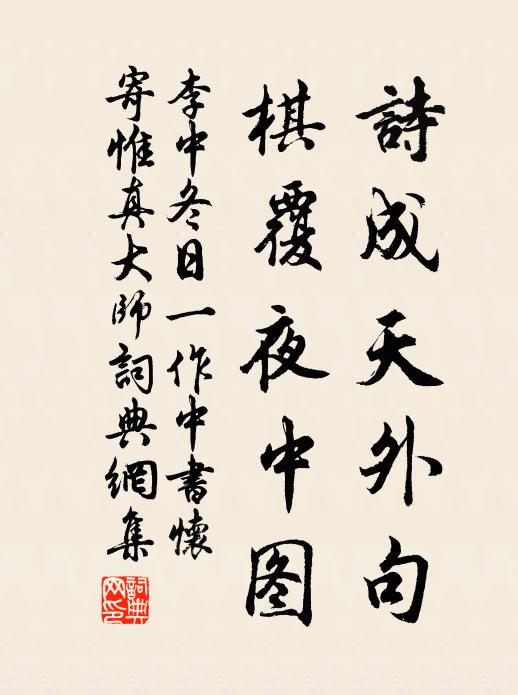 詩成天外句
棋覆夜中图
李中冬日一作中書懷
寄惟真大師詞典網集
詞典網印